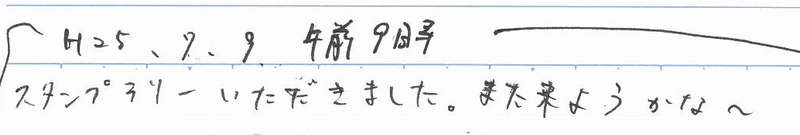 H25、7、9 午前9時
スタンプラリーいただきました。また来ようかな〜